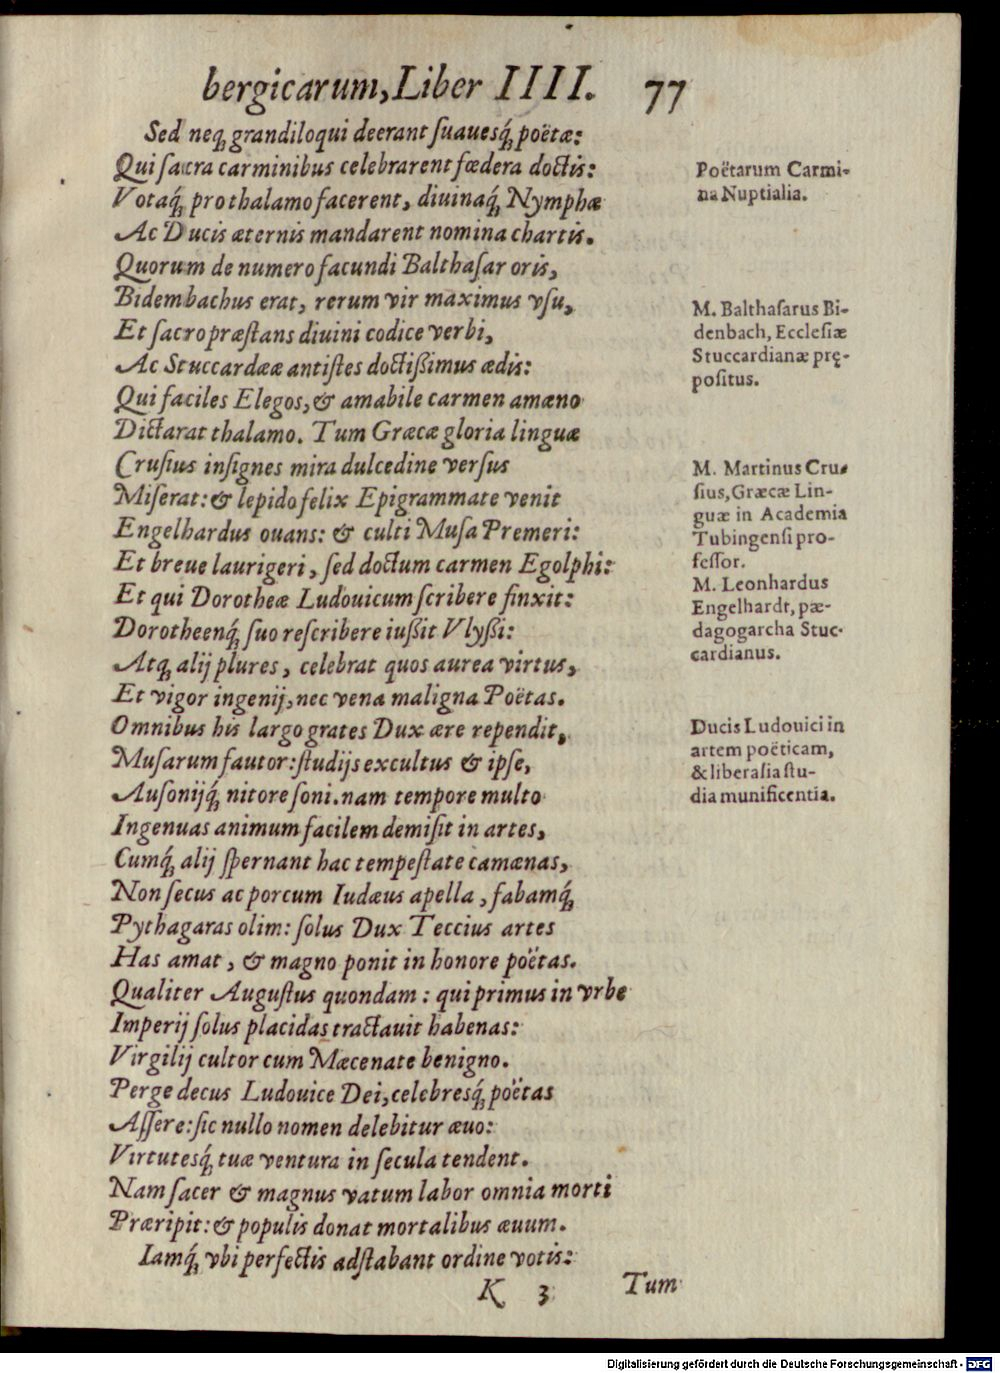 bergicarum, Liber IIII. 77
Sed neq́; grandiloqui deerant ſuauesq́; poëtæ:
Qui ſacra carminibus celebrarent fœdera doctis:
Votaq́; pro thalamo facerent, diuinaq́; Nymphæ
Ac Ducis æternis mandarent nomina chartis.
Quorum de numero facundi Balthaſar oris,
Bidembachus erat, rerum vir maximus vſu,
Et ſacro præſtans diuini codice verbi,
Ac Stuccardææ antiſtes doctißimus ædis:
Qui faciles Elegos, & amabile carmen amœno
Dictarat thalamo. Tum Græcæ gloria linguæ
Cruſius inſignes mira dulcedine verſus
Miſerat: & lepido felix Epigrammate venit
Engelhardus ouans: & culti Muſa Premeri:
Et breue laurigeri, ſed doctum carmen Egolphi:
Et qui Dorotheæ Ludouicum ſcribere finxit:
Dorotheenq́; ſuo reſcribere iußit Vlyßi:
Atq; alij plures, celebrat quos aurea virtus,
Et vigor ingenij, nec vena maligna Poëtas.
Omnibus his largo grates Dux ære rependit,
Muſarum fautor: ſtudijs excultus & ipſe,
Auſonijq́; nitore ſoni. nam tempore multo
Ingenuas animum facilem demiſit in artes,
Cumq́; alij ſpernant hac tempeſtate camœnas,
Non ſecus ac porcum Iudæus apella, fabamq́;
Pythagaras olim: ſolus Dux Teccius artes
Has amat, & magno ponit in honore poëtas.
Qualiter Auguſtus quondam: qui primus in vrbe
Imperij ſolus placidas tractauit habenas:
Virgilij cultor cum Mæcenate benigno.
Perge decus Ludouice Dei, celebresq́; poëtas
Aſſere: ſic nullo nomen delebitur æuo:
Virtutesq́; tuæ ventura in ſecula tendent.
Nam ſacer & magnus vatum labor omnia morti
Præripit: & populis donat mortalibus æuum.
Iamq́; vbi perfectis adſtabant ordine votis:
K 3 Tum
Poëtarum Carmi-
na Nuptialia.
M. Balthaſarus Bi-
denbach, Eccleſiæ
Stuccardianæ prę-
poſitus.
M. Martinus Cru-
ſius, Græcæ Lin-
guæ in Academia
Tubingenſi pro-
feſſor.
M. Leonhardus
Engelhardt, pæ-
dagogarcha Stuc-
cardianus.
Ducis Ludouici in
artem poëticam,
& liberalia ſtu-
dia munificentia.
Digitalisierung gefördert durch die Deutsche Forschungsgemeinschaft - DFG